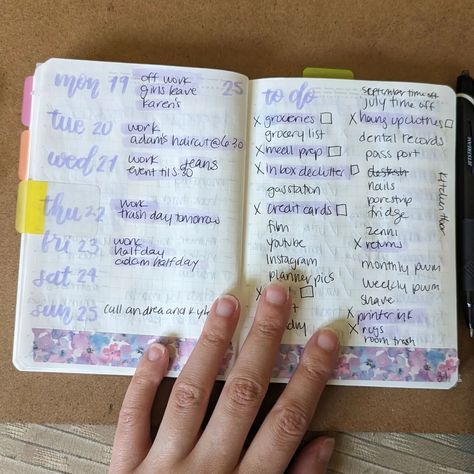 mon 19
off work
girls leave
Karen's
25
tue 20
work
adam's haircut @ 6:30
wed 21
work
jeans
event til 5:30
thu 22
work
trash day tomorrow
fri 23
work
half day
adam half day
sat 24
sun 25
call andrea and kyle
to do
X groceries
grocery list
X meal prep
X inbox declutter
gas station
X credit cards
film
youtube
Instagram
planner pics
september time off
july time off
X hang up clothes
dental records
passport
nails
pore strip
fridge
zenni
X returns
monthly pwm
weekly pwm
shave
X printer ink
X rugs
room trash
kitchen floor